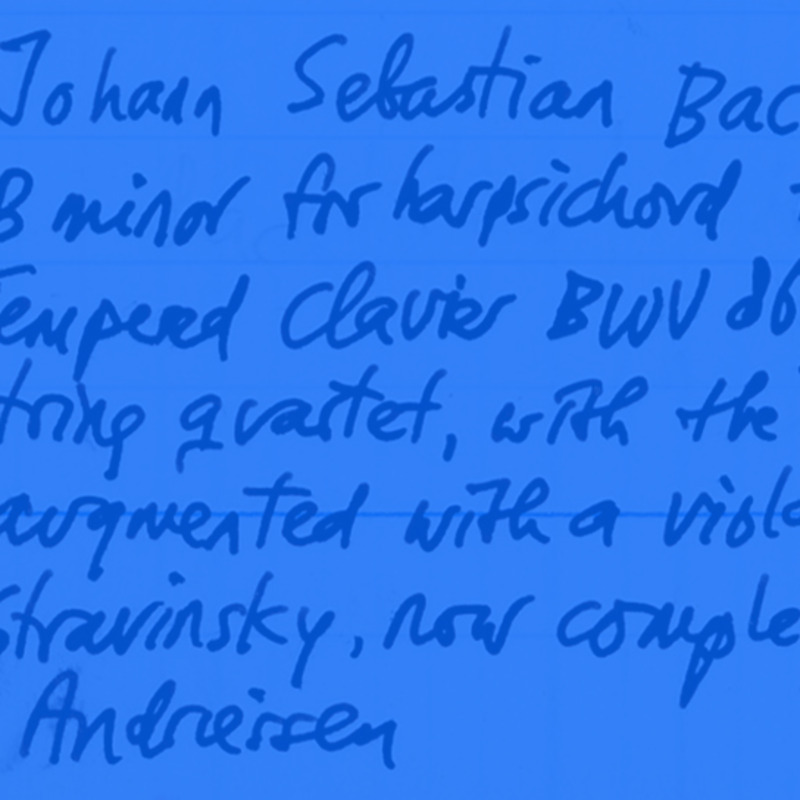 Johann Sebastian Bac
B minor for harpsichord
Tempered Clavier BWV 86
string quartet, with the
augmented with a viola
Stravinsky, now comple
Andreissen